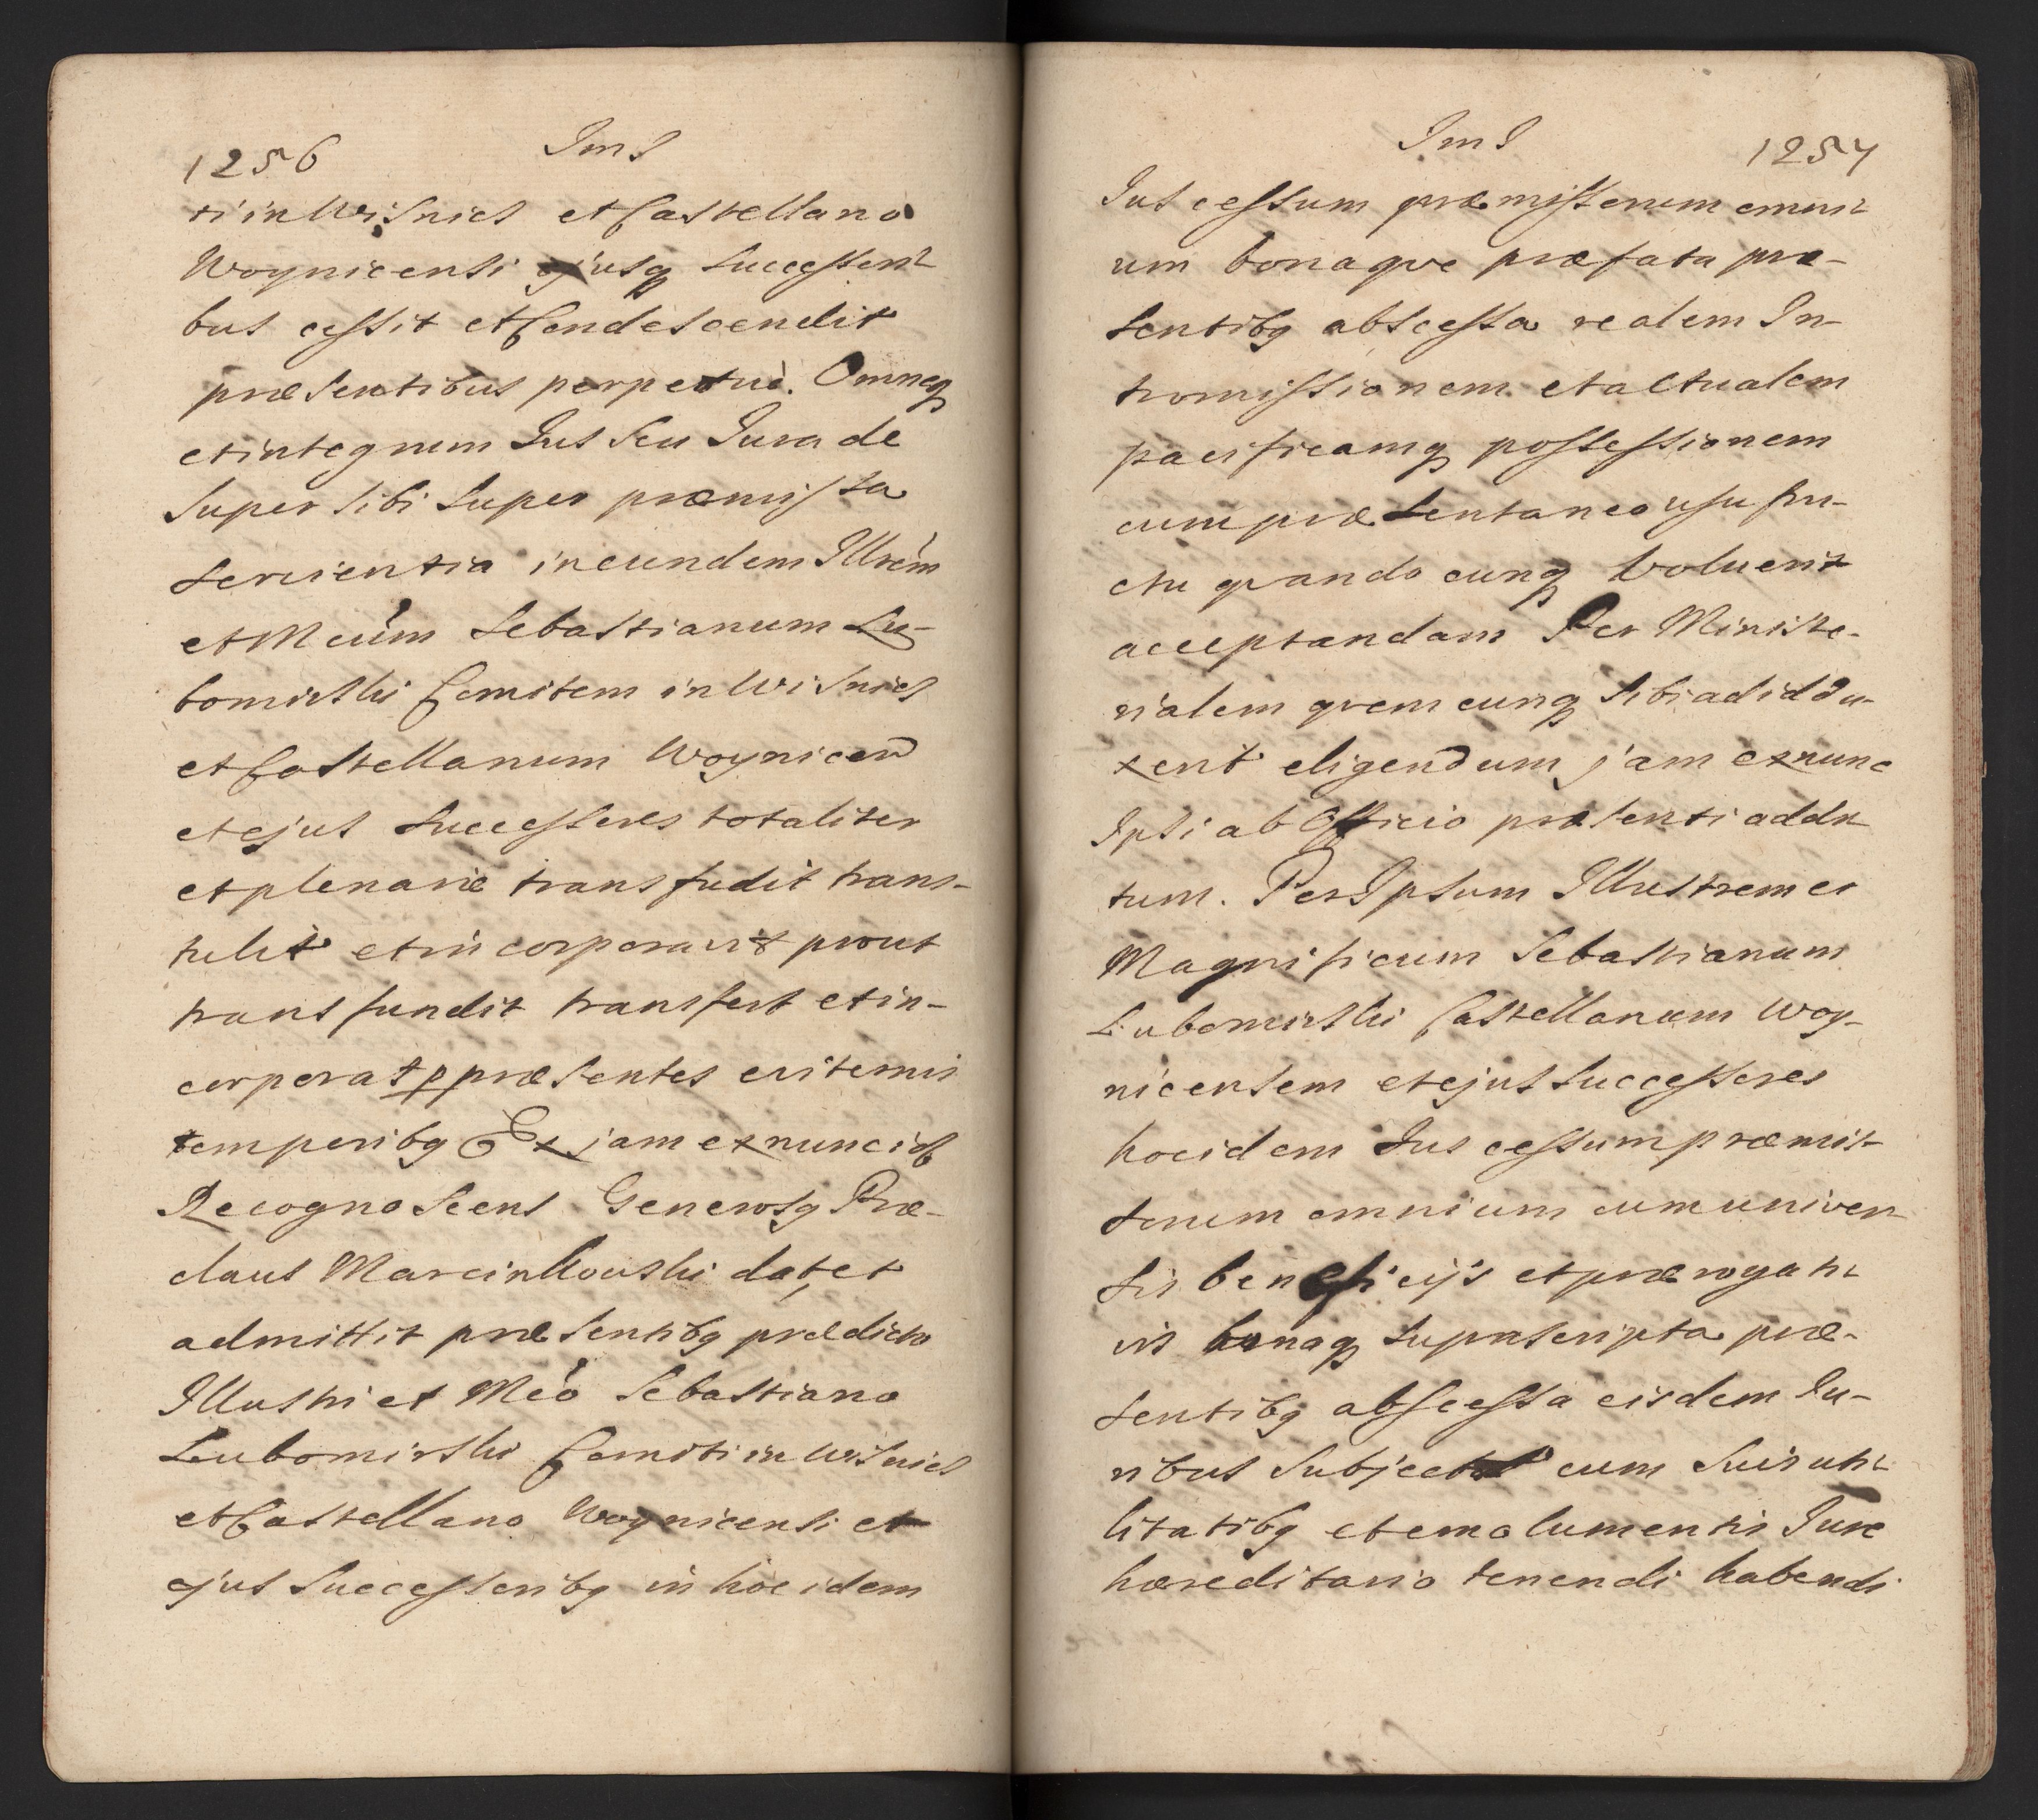 1256 Ims
ti in Wisnicz et Castellano
Woynicensi ejusq successori-
bus cessit et Condescendit
præsentibus perpetuè. Omneq
et integrum Jus seu Jura de
super sibi super præmissa
servientia in eundem Illrem
et Mcum Sebastianum Lu-
bomirski Comitem in Wisnicz
et Castellanum Woynicen
et ejus Successores totaliter
et plenarie transfudit trans-
tulit et incorporavit prout
transfundit transfert et in-
corporat p præsentes eviternis
temporibq Et jam ex nunc id
Recognoscens Generosq Præ-
claus Marcinkowski dat, et
admittit præsentibq prædicto
Illustri et Mco Sebastiano
Lubomirski Comiti in Wisnicz
et Castellano Woynicensi et
ejus Successoribq in hoc idem
Ims 1257
Jus cessum præmissorum omni-
um bonaque præfata præ-
sentibq abscessa realem In-
tromissionem et actualem
pacificamq possessionem
cum præsentaneo usu fru-
ctu quando cunq voluerit
acceptandam Per Ministe-
rialem quem cunq sibi ad id du-
xerit eligendum jam ex nunc
Ipsi ab Officio præsenti addi-
tum. Per Ipsum Illustrem et
Magnificum Sebastianum
Lubomirski Castellanum Woy-
nicensem et ejus Successores
hoc idem Jus cessum præmis-
sorum omnium cum univer-
sis beneficijs et prærogati-
vis bonaq suprascripta præ-
sentibq abscessa eisdem Ju-
ribus subjecta cum suis uti-
litatibq et emolumentis Jure
hæreditario tenendi habendi